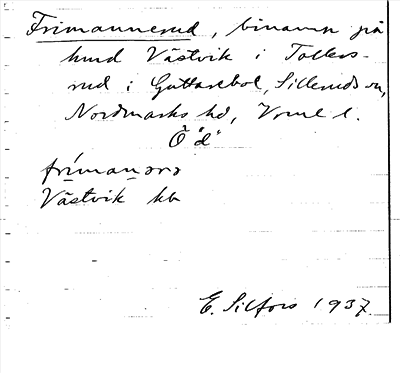 Frimannerud, binamn på
hmd Västvik i Tollers-
rud i Guttarsbol, Silleruds sn,
Nordmarks hd, Vrml l.
"Öd"
Västvik kb
E. Silfors 1937.